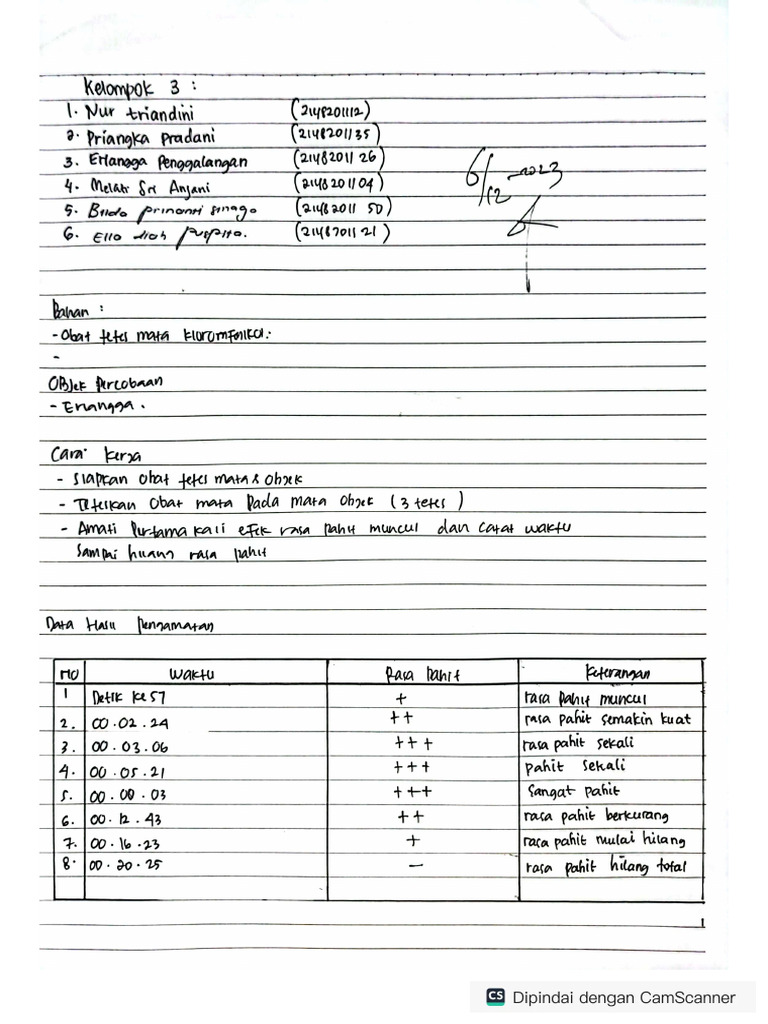 Kelompok 3 :
1. Nur triandini (2148201112)
2. Priangka Pradani (2148201135)
3. Erlangga Penggalangan (2148201126)
4. Melati Sri Anjani (2148201104)
5. prinanti sinaga (2148201150)
6. Ella diah puspita. (2148701121)
6/12-2023
Bahan :
- Obat tetes mata
-
Objek Percobaan
- Erlangga.
Cara Kerja
- Siapkan obat tetes mata & objek
- Teteskan obat mata pada mata objek (3 tetes)
- Amati Pertama kali efek rasa pahit muncul dan catat waktu
Sampai hilang rasa pahit
Data Hasil Pengamatan
NO Waktu Rasa Pahit Keterangan
1 Detik ke 57 + rasa pahit muncul
2. 00.02.24 ++ rasa pahit semakin kuat
3. 00.03.06 +++ rasa pahit sekali
4. 00.05.21 +++ pahit sekali
5. 00.00.03 +++ Sangat pahit
6. 00.12.43 ++ rasa pahit berkurang
7. 00.16.23 + rasa pahit mulai hilang
8. 00.20.25 - rasa pahit hilang total
1
CS Dipindai dengan CamScanner